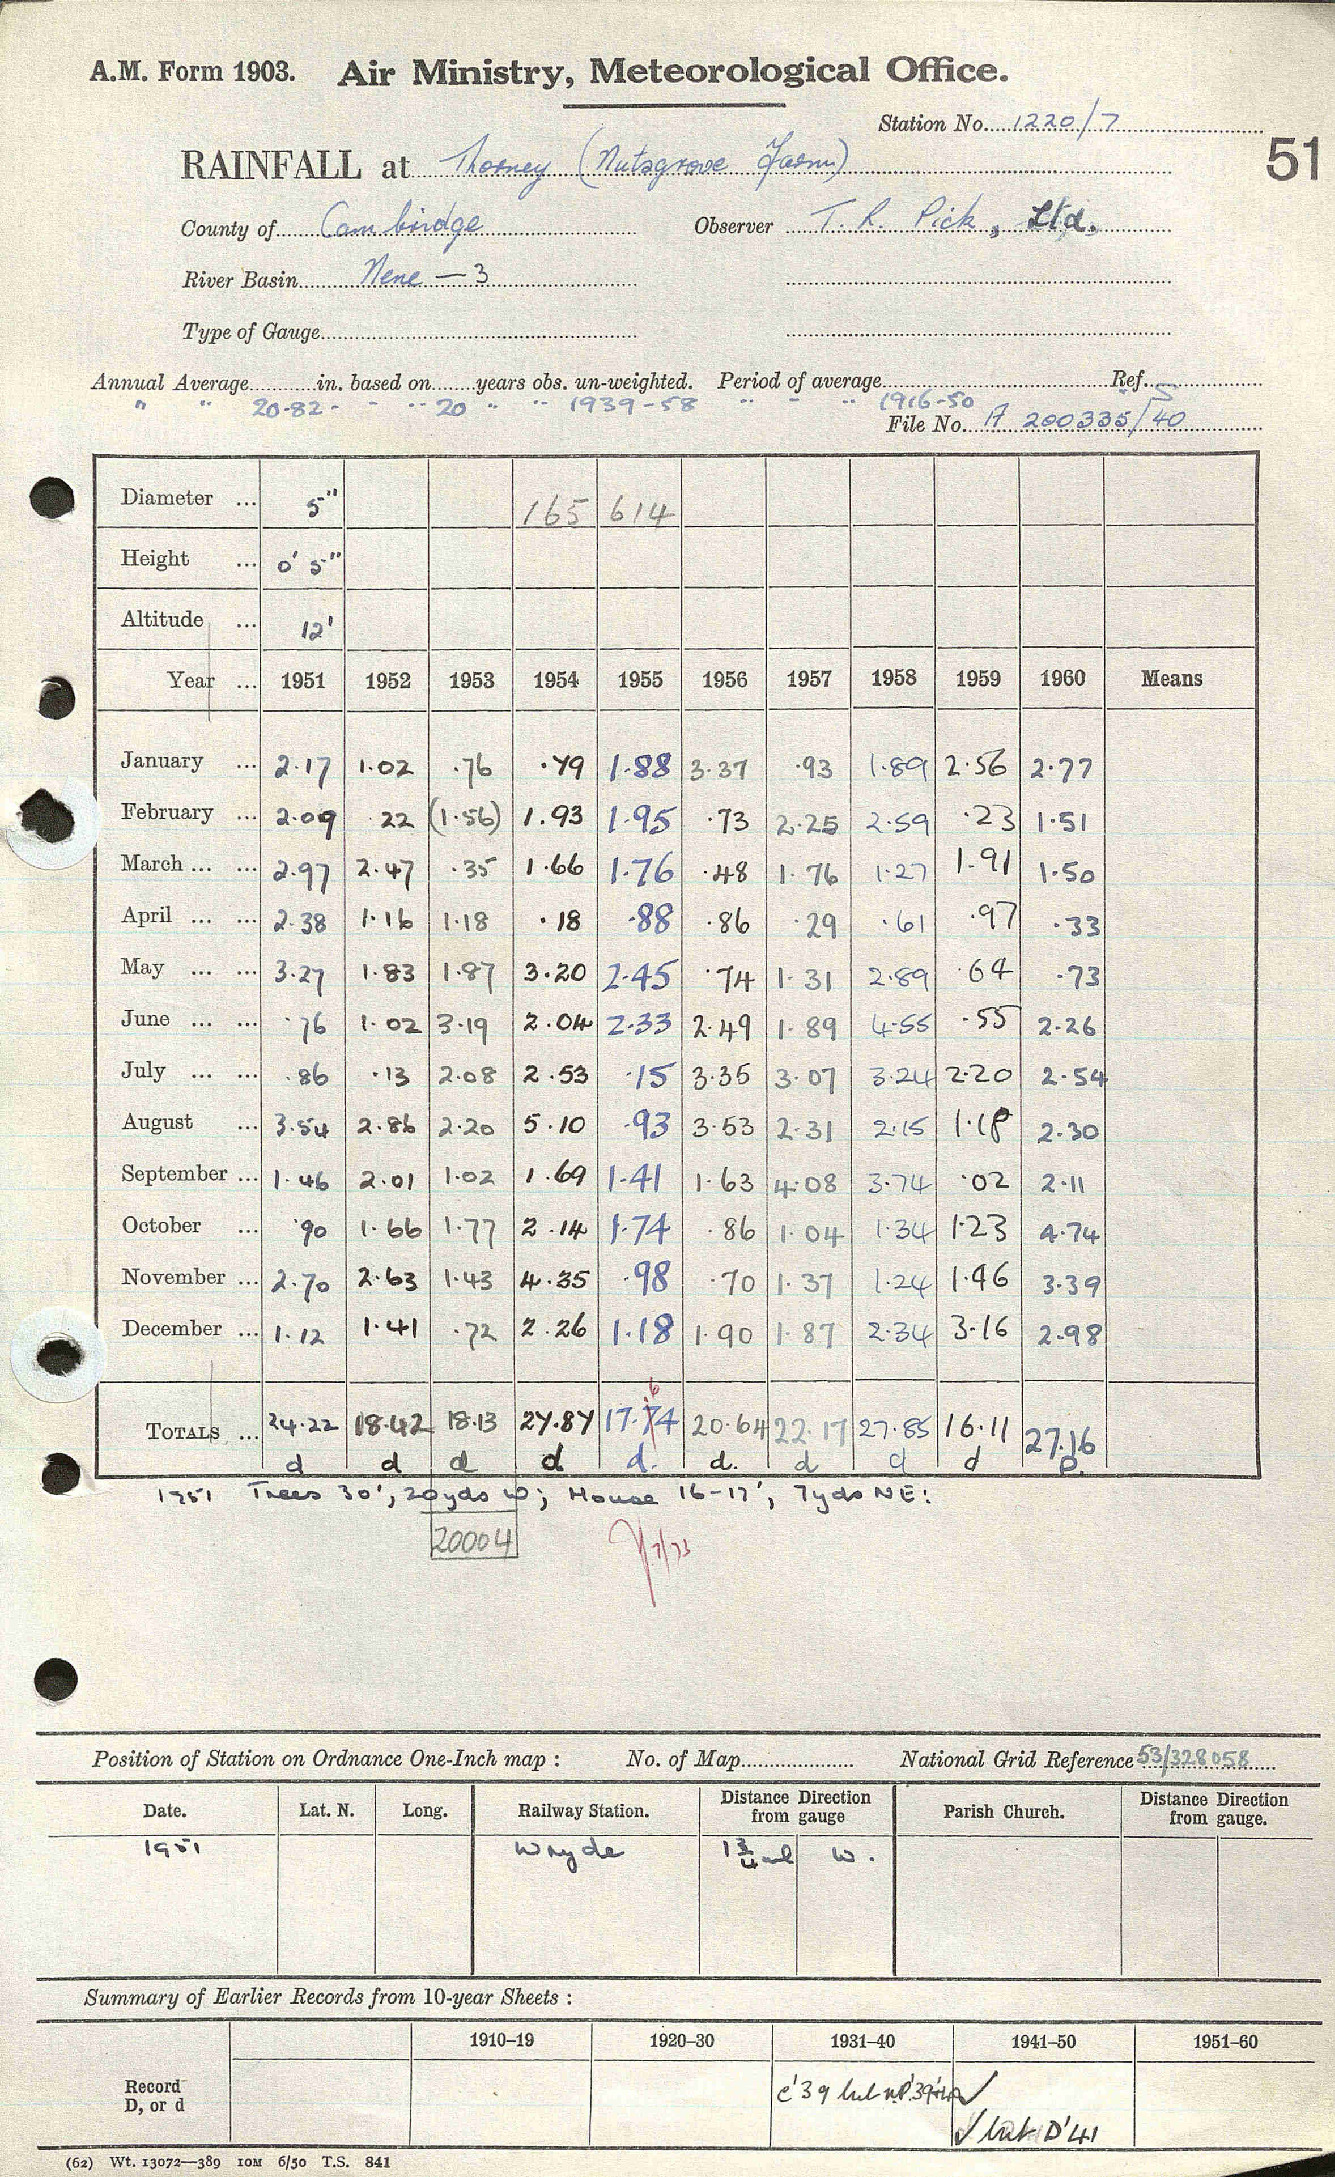 A.M. Form 1903. Air Ministry, Meteorological Office.
Station No. 1220/7
51
RAINFALL at Thorney (Nutsgrove Farm)
County of Cambridge Observer T. R. Pick, Ltd.
River Basin Nene — 3
Type of Gauge
Annual Average in. based on years obs. un-weighted. Period of average Ref. S
" " 20·82 - - " 20 " " 1939-58 " - " 1916-50
File No. A 200335/40
Diameter ... 5" 165 614
Height ... 0' 5"
Altitude ... 12'
Year ... 1951 1952 1953 1954 1955 1956 1957 1958 1959 1960 Means
January ... 2·17 1·02 ·76 ·79 1·88 3·37 ·93 1·89 2·56 2·77
February ... 2·09 ·22 (1·56) 1·93 1·95 ·73 2·25 2·59 ·23 1·51
March ... ... 2·97 2·47 ·35 1·66 1·76 ·48 1·76 1·27 1·91 1·50
April ... ... 2·38 1·16 1·18 ·18 ·88 ·86 ·29 ·61 ·97 ·33
May ... ... 3·27 1·83 1·87 3·20 2·45 ·74 1·31 2·89 ·64 ·73
June ... ... ·76 1·02 3·19 2·04 2·33 2·49 1·89 4·55 ·55 2·26
July ... ... ·86 ·13 2·08 2·53 ·15 3·35 3·07 3·24 2·20 2·54
August ... 3·54 2·86 2·20 5·10 ·93 3·53 2·31 2·15 1·18 2·30
September ... 1·46 2·01 1·02 1·69 1·41 1·63 4·08 3·74 ·02 2·11
October ... ·90 1·66 1·77 2·14 1·74 ·86 1·04 1·34 1·23 4·74
November ... 2·70 2·63 1·43 4·35 ·98 ·70 1·37 1·24 1·46 3·39
December ... 1·12 1·41 ·72 2·26 1·18 1·90 1·87 2·34 3·16 2·98
6
TOTALS ... 24·22 18·42 18·13 27·87 17·74 20·64 22·17 27·85 16·11 27·16
d d d d d. d. d d d D.
1951 Trees 30', 20yds W; House 16-17', 7yds NE:
20004
7/73
Position of Station on Ordnance One-Inch map : No. of Map National Grid Reference 53/328058
Date. Lat. N. Long. Railway Station. Distance Direction from gauge Parish Church. Distance Direction from gauge.
1951 Wryde 1¾ml W.
Summary of Earlier Records from 10-year Sheets :
1910–19 1920–30 1931–40 1941–50 1951–60
Record
D, or d
c'39 but n.P.'39+40 ✓
✓ but D'41
(62) Wt. 13072—389 10M 6/50 T.S. 841